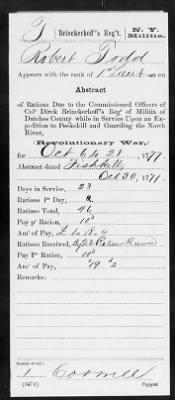 T | Brinckerhoff's Reg't. | N. Y. Militia.
Robert Todd
Appears with the rank of 1st Lieut on an
Abstract
of Rations Due to the Commissioned Officers of
Col° Dirck Brinckerhoff's Reg' of Militia of
Dutches County while in Service Upon an Ex-
pedition to Peekskill and Guarding the North
River,
(Revolutionary War,)
for Oct 6 to 28, 1777.
Abstract dated Fishkill,
Oct 30, 1771.
Days in Service, 23
Rations P' Day, 2
Rations Total, 46
Pay p' Ration, 10d
Am' of Pay, £ 1. 18. 4
Rations Received,
Pay P' Ration, 10d
Am' of Pay,
Remarks:
Number of roll:
1
(547d)
Copyist.